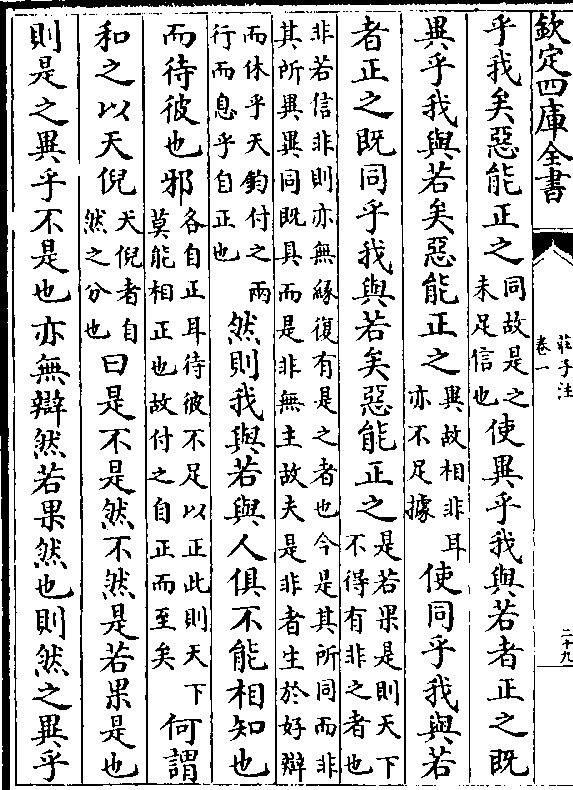 欽定四庫全書
莊子注
卷一
二十九
乎我矣惡能正之同故是之未足信也使異乎我與若者正之既
異乎我與若矣惡能正之異故相非耳亦不足據使同乎我與若
者正之既同乎我與若矣惡能正之是若果是則天下不得有非之者也
非若信非則亦無緣復有是之者也今是其所同而非
其所異異同既具而是非無主故夫是非者生於好辯
而休乎天鈞付之兩行而息乎自正也然則我與若與人俱不能相知也
而待彼也邪各自正耳待彼不足以正此則天下莫能相正也故付之自正而至矣何謂
和之以天倪天倪者自然之分也曰是不是然不然是若果是也
則是之異乎不是也亦無辯然若果然也則然之異乎